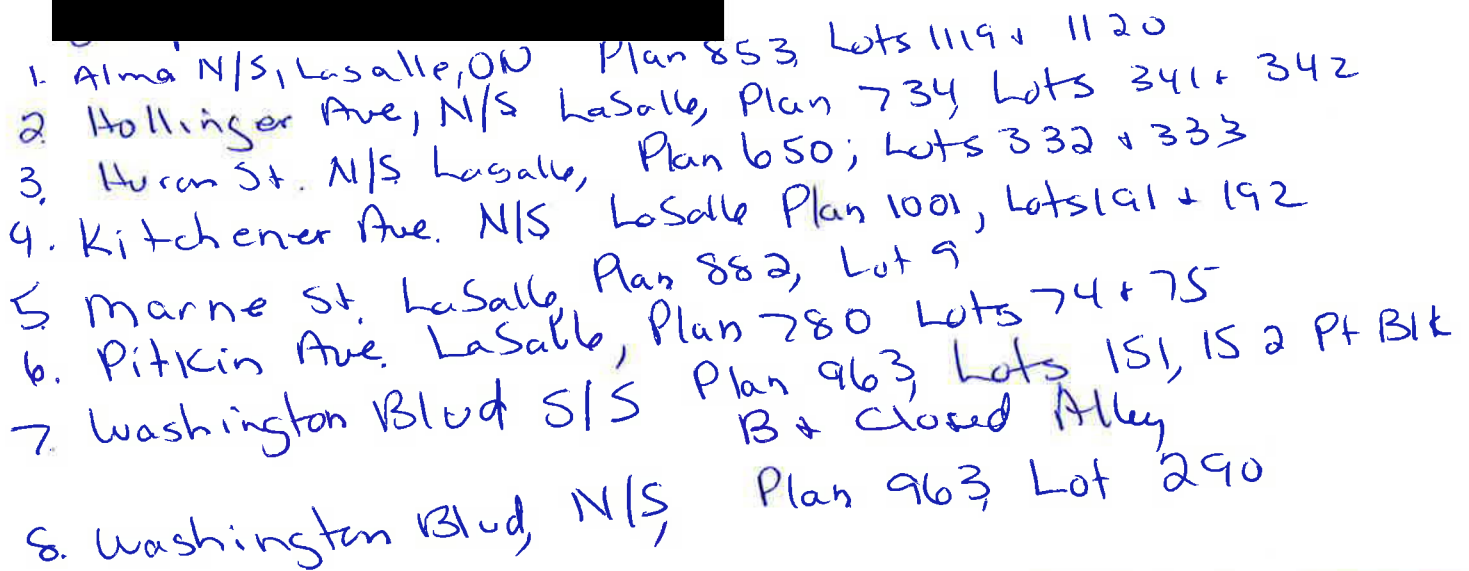 1. Alma N/S, Lasalle, ON Plan 853, Lots 1119 & 1120
2. Hollinger Ave, N/S LaSalle, Plan 734, Lots 341 & 342
3. Huron St. N/S Lasalle, Plan 650; Lots 332 & 333
4. Kitchener Ave. N/S LaSalle Plan 1001, Lots 191 & 192
5. Marne St. LaSalle, Plan 882, Lot 9
6. Pitkin Ave. LaSalle, Plan 780 Lots 74 & 75
7. Washington Blvd S/S Plan 963, Lots 151, 152 Pt Blk
B & Closed Alley
8. Washington Blvd, N/S, Plan 963, Lot 290